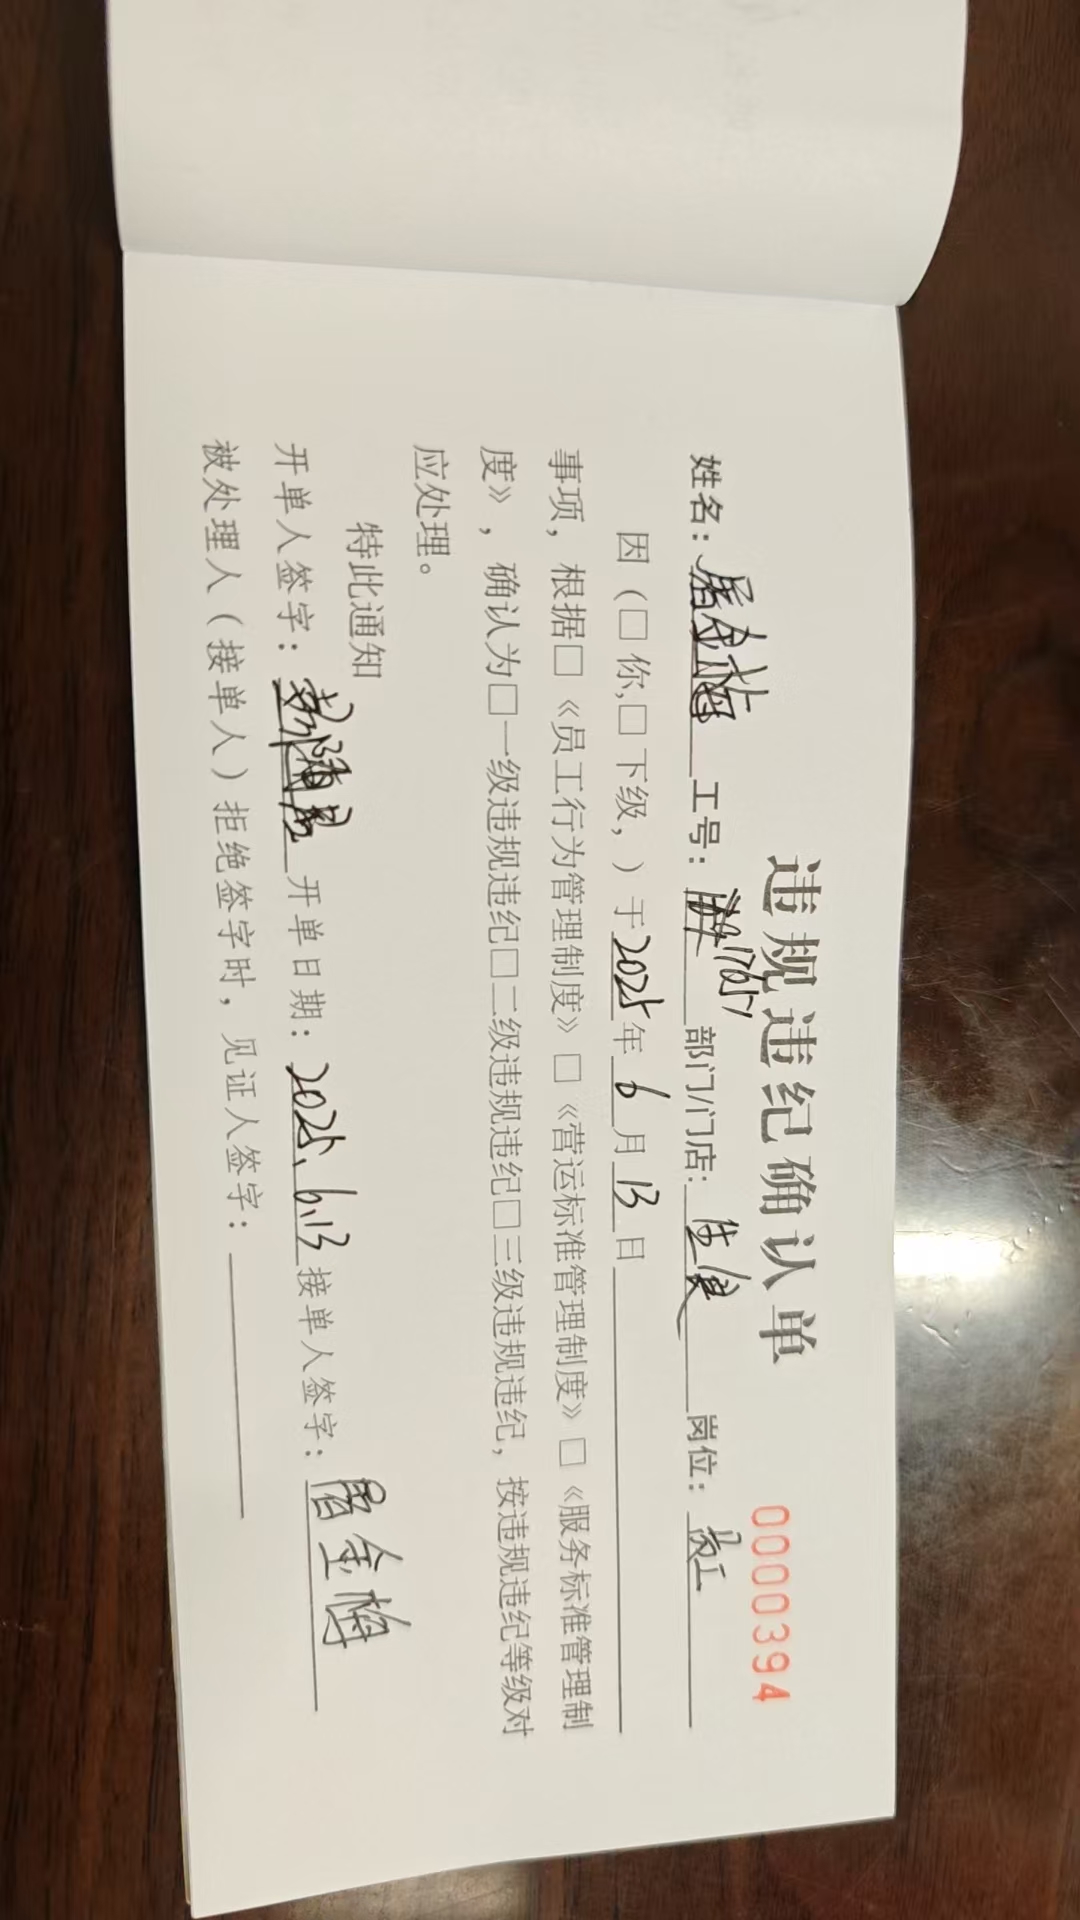 违规违纪确认单
0000394
姓名：屠金梅 工号： 17657 部门/门店： 岗位：员工
因（□ 你,□ 下级，）于2025年6月13日
事项，根据□《员工行为管理制度》□《营运标准管理制度》□《服务标准管理制
度》，确认为□一级违规违纪□二级违规违纪□三级违规违纪，按违规违纪等级对
应处理。
特此通知
开单人签字： 开单日期：2025.6.13 接单人签字：屠金梅
被处理人（接单人）拒绝签字时，见证人签字：